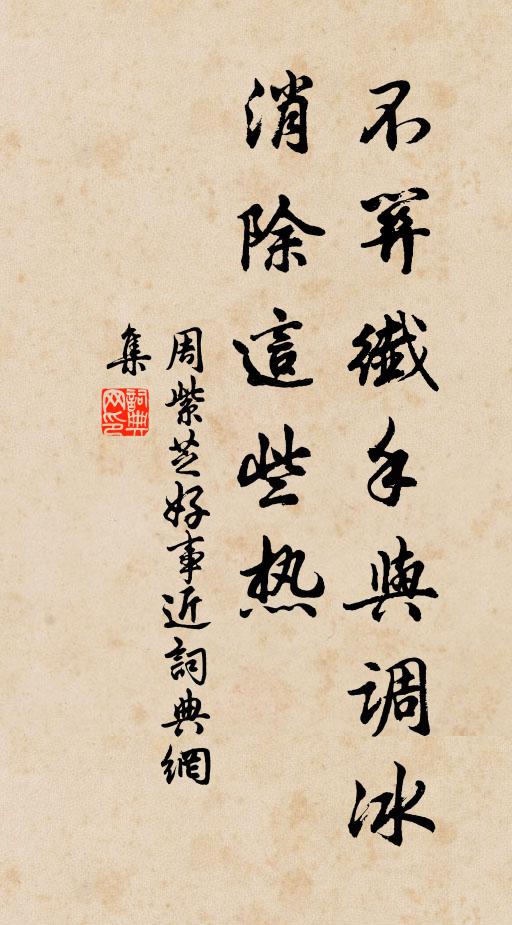 不筭纖手與调冰
消除這些热
周紫芝好事近詞典網
集
詞典
网印